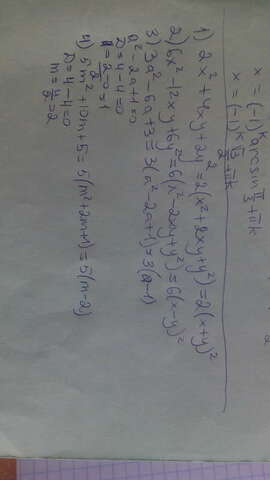 x = (-1)^k arcsin π/3 + πk
x = (-1)^k √3/2 + πk
1) 2x² + 4xy + 2y² = 2(x² + 2xy + y²) = 2(x + y)²
2) 6x² - 12xy + 6y² = 6(x² - 2xy + y²) = 6(x - y)²
3) 3a² - 6a + 3 = 3(a² - 2a + 1) = 3(a - 1)
a² - 2a + 1 = 0
D = 4 - 4 = 0
a = 2 - 0 / 2 = 1
4) 5m² + 10m + 5 = 5(m² + 2m + 1) = 5(m - 2)
D = 4 - 4 = 0
m = 4/2 = 2